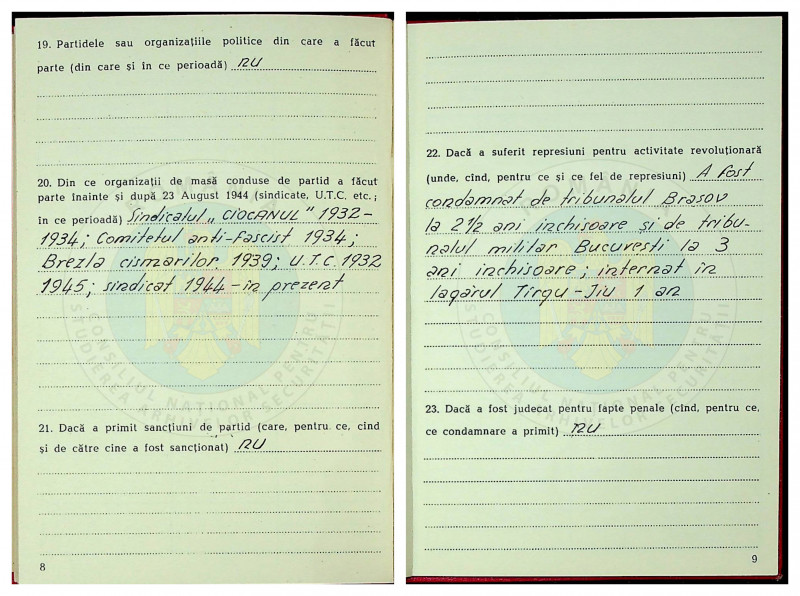 19. Partidele sau organizațiile politice din care a făcut
parte (din care și în ce perioadă) NU
20. Din ce organizații de masă conduse de partid a făcut
parte înainte și după 23 August 1944 (sindicate, U.T.C. etc.;
în ce perioadă) Sindicatul „CIOCANUL" 1932-
1934; Comitetul anti-fascist 1934;
Brezla cismarilor 1939; U.T.C. 1932
1945; sindicat 1944-în prezent
21. Dacă a primit sancțiuni de partid (care, pentru ce, cînd
și de către cine a fost sancționat) NU
8
22. Dacă a suferit represiuni pentru activitate revoluționară
(unde, cînd, pentru ce și ce fel de represiuni) A fost
condamnat de tribunalul Brașov
la 2 1/2 ani închisoare și de tribu-
nalul militar București la 3
ani închisoare; internat în
lagărul Tîrgu-Jiu 1 an
23. Dacă a fost judecat pentru fapte penale (cînd, pentru ce,
ce condamnare a primit) NU
9
ROMÂNIA
CONSILIUL NAȚIONAL PENTRU
STUDIEREA ARHIVELOR SECURITĂȚII
ROMÂNIA
CONSILIUL NAȚIONAL PENTRU
STUDIEREA ARHIVELOR SECURITĂȚII